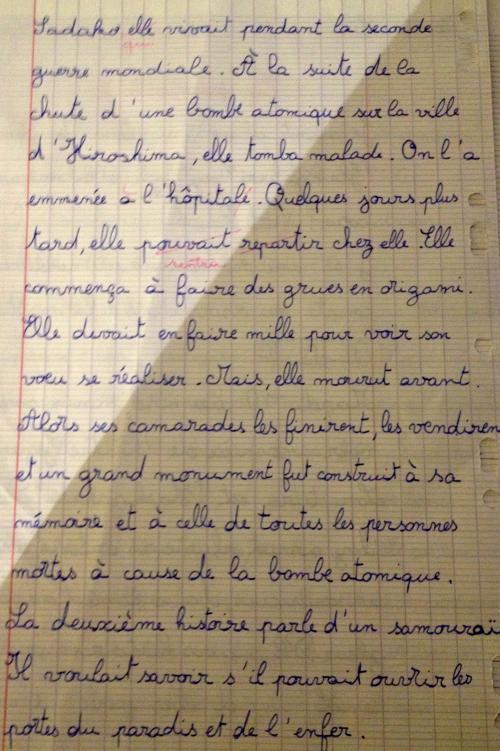 Sadako elle vivait pendant la seconde
qui
guerre mondiale. À la suite de la
chute d'une bombe atomique sur la ville
d'Hiroshima, elle tomba malade. On l'a
emmenée à l'hôpital. Quelques jours plus
tard, elle pouvait repartir chez elle. Elle
rentra
commença à faire des grues en origami.
Elle devait en faire mille pour voir son
voeu se réaliser. Mais, elle mourut avant.
Alors ses camarades les finirent, les vendiren
et un grand monument fut construit à sa
mémoire et à celle de toutes les personnes
mortes à cause de la bombe atomique.
La deuxième histoire parle d'un samouraï
Il voulait savoir s'il pouvait ouvrir les
portes du paradis et de l'enfer.